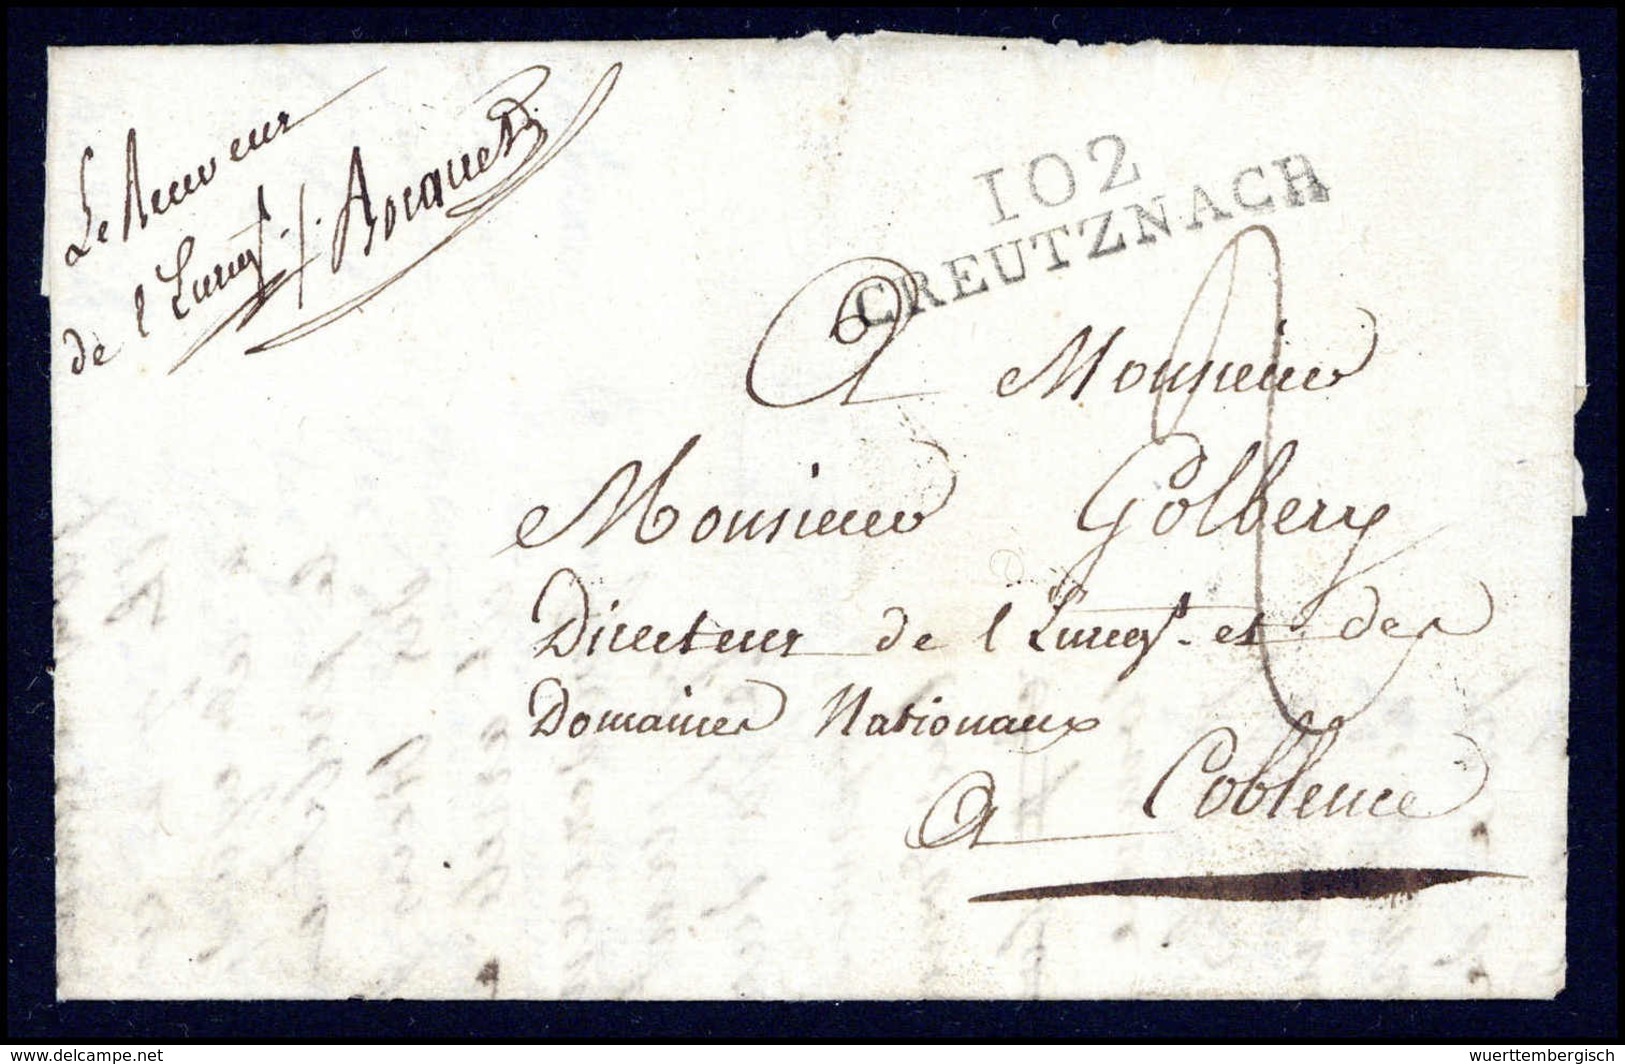 Le Receveur
de l'Enregt. Bocquet
102
CREUTZNACH
A Monsieur
Monsieur Golbery
Directeur de l'Enregt. et des
Domaines Nationaux
a Coblence
www.delcampe.net
wuerttembergisch